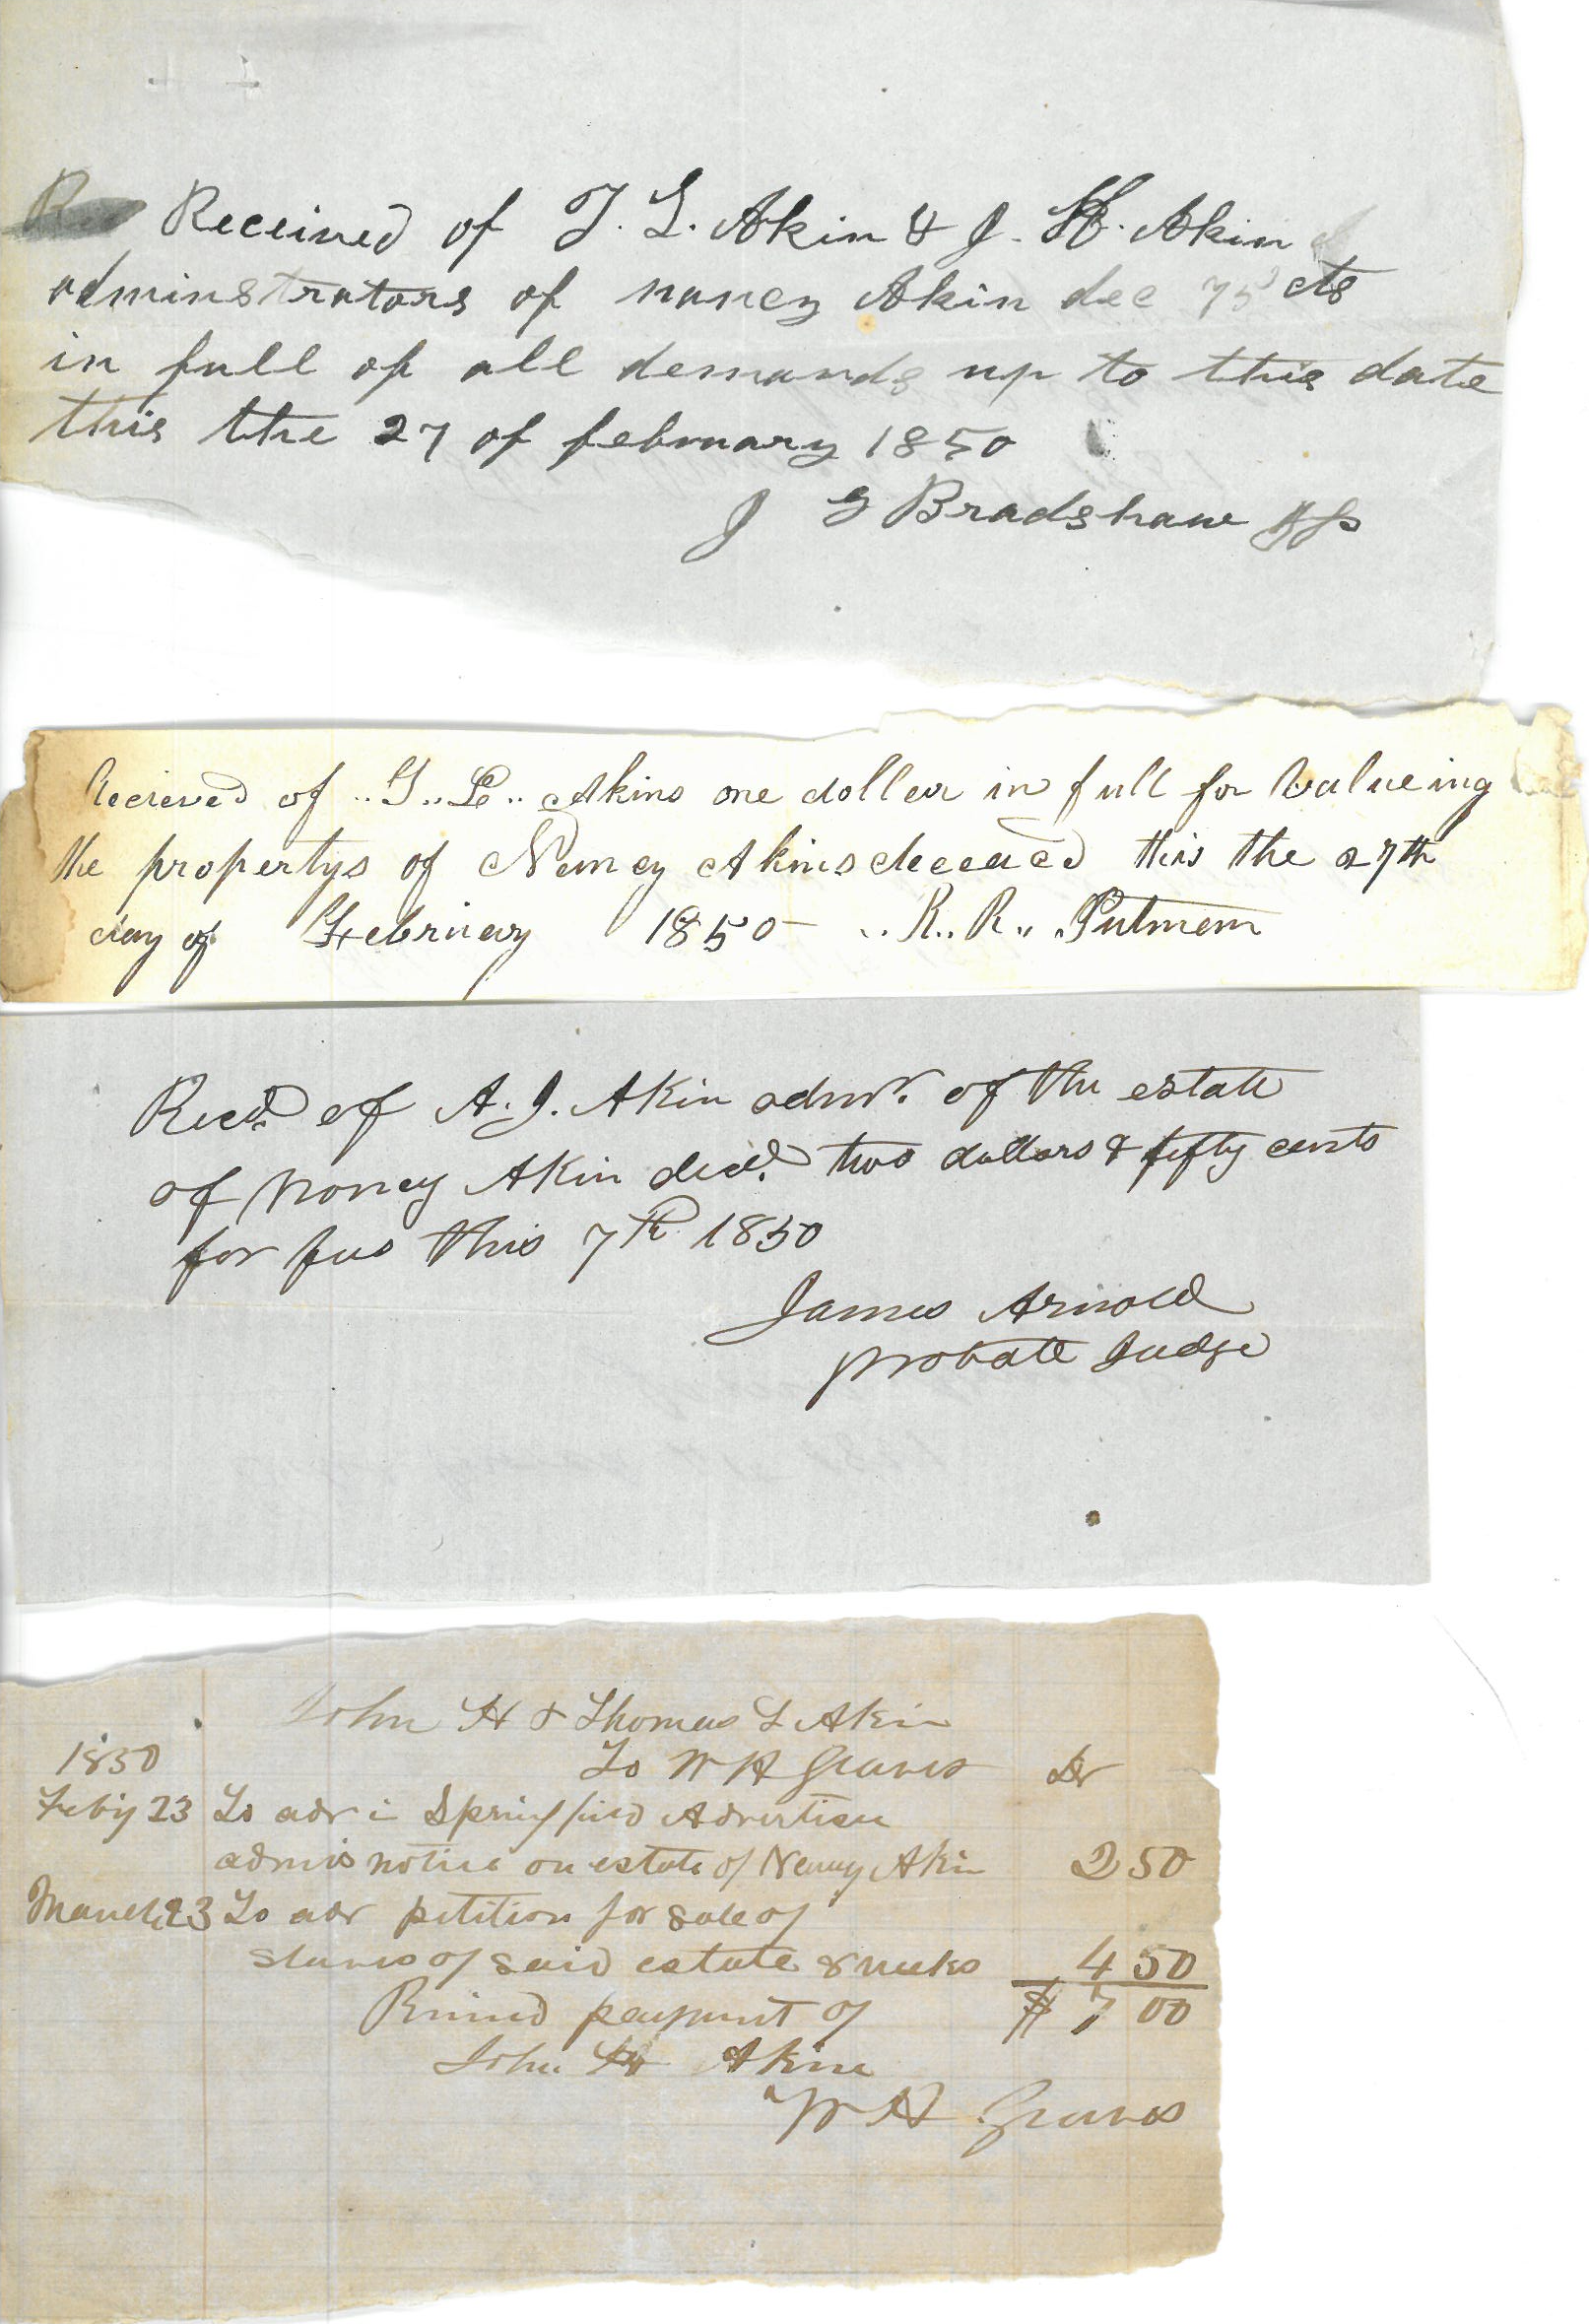 Received of T. L. Akin & J. H. Akin
adminstrators of nancy Akin dec 75 cts
in full of all demands up to this date
this the 27 of february 1850
J G Bradshaw
Recieved of ..T..L.. Akins one doller in full for valueing
the propertys of Nancy Akins deceaced this the 27th
day of February 1850 - ..R..R.. Putmem
Recd. of A. J. Akin admr. of the estate
of Nancy Akin decd. two dollars & fifty cents
for fees this 7th 1850
James Arnold
Probate Judge
John H & Thomas L Akin
1850 To W H Graves Dr
Feby 23 To adr i Springfield Advertiser
admrs notice on estate of Nancy Akin 2 50
March 23 To adr petition for sale of
slaves of said estate 8 weeks 4 50
Recived payment of $ 7 00
John H Akin
W H Graves